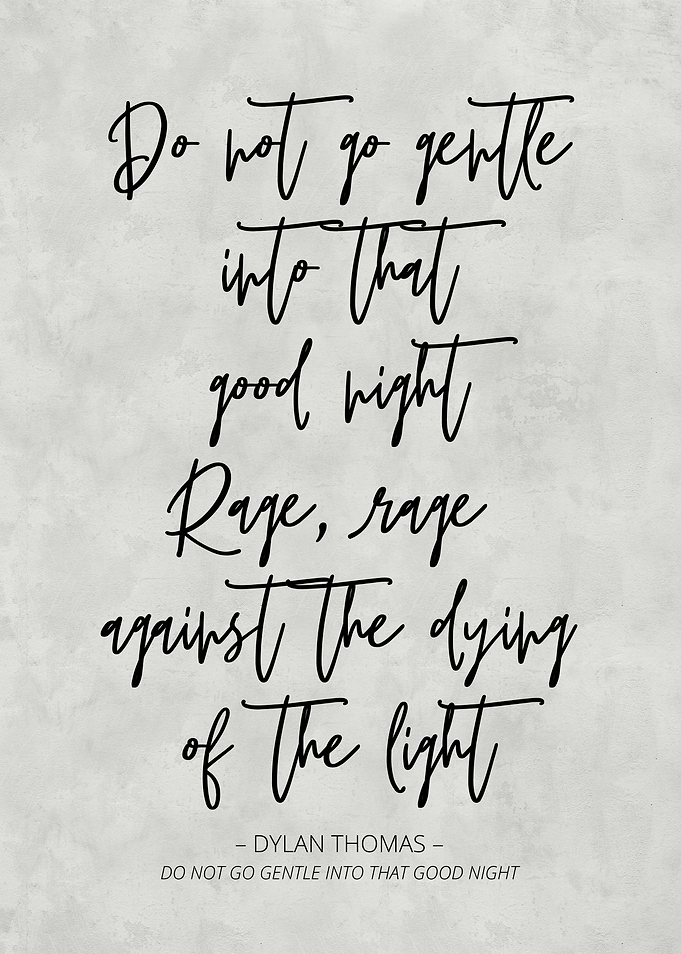 Do not go gentle
into that
good night
Rage, rage
against the dying
of the light
– DYLAN THOMAS –
DO NOT GO GENTLE INTO THAT GOOD NIGHT